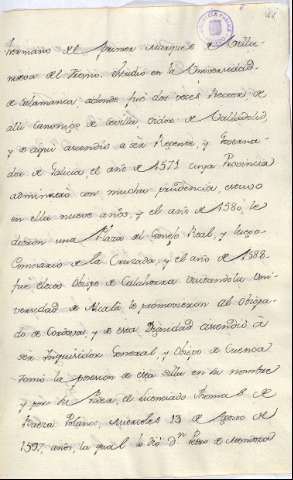 hermano del primer Marques de Villa-
nueva del Fresno. Studio en la Universidad
de Salamanca, adonde fué dos veces Rector, de
alli Canonigo de Sevilla, oidor de Valladolid,
y de aqui ascendió a ser Regente, y Governa-
dor de Galicia el año de 1571 cuya Provincia
administró con mucha prudencia, estuvo
en ella nueve años, y el año de 1580, le
dieron una Plaza del Consejo Real, y luego
Comisario de la Cruzada, y el año de 1588
fué electo Obispo de Calahorra visitandola Uni-
versidad de Alcalá le promovieron al Obispa-
do de Cordova, y de esta Dignidad ascendió à
ser Inquisidor General, y Obispo de Cuenca
tomó la posesion de esta silla en su nombre
y por su Poder, el Licenciado Thomas de
Baeza Polanco, miercoles 13 de Agosto de
159 años, la qual le dió Dn Pedro de Mendoza